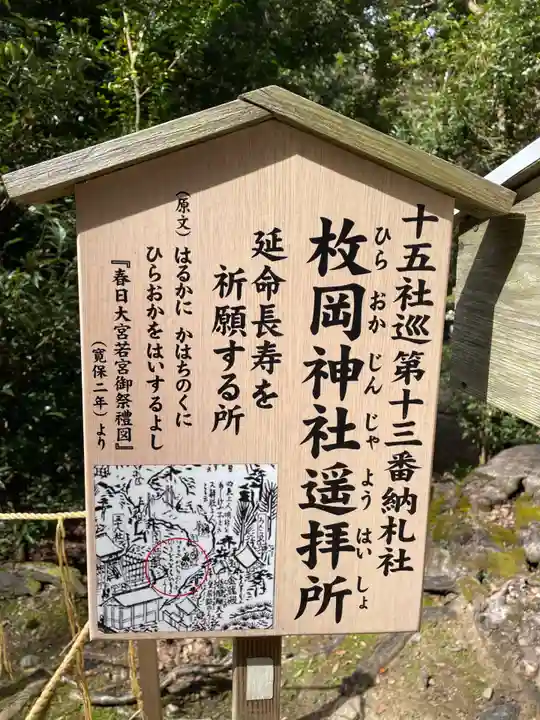 十五社巡第十三番納札社
ひらおかじんじゃようはいしょ
枚岡神社遥拝所
延命長寿を
祈願する所
(原文)はるかに かはちのくに
ひらおかをはいするよし
『春日大宮若宮御祭禮図』
(寛保二年)より